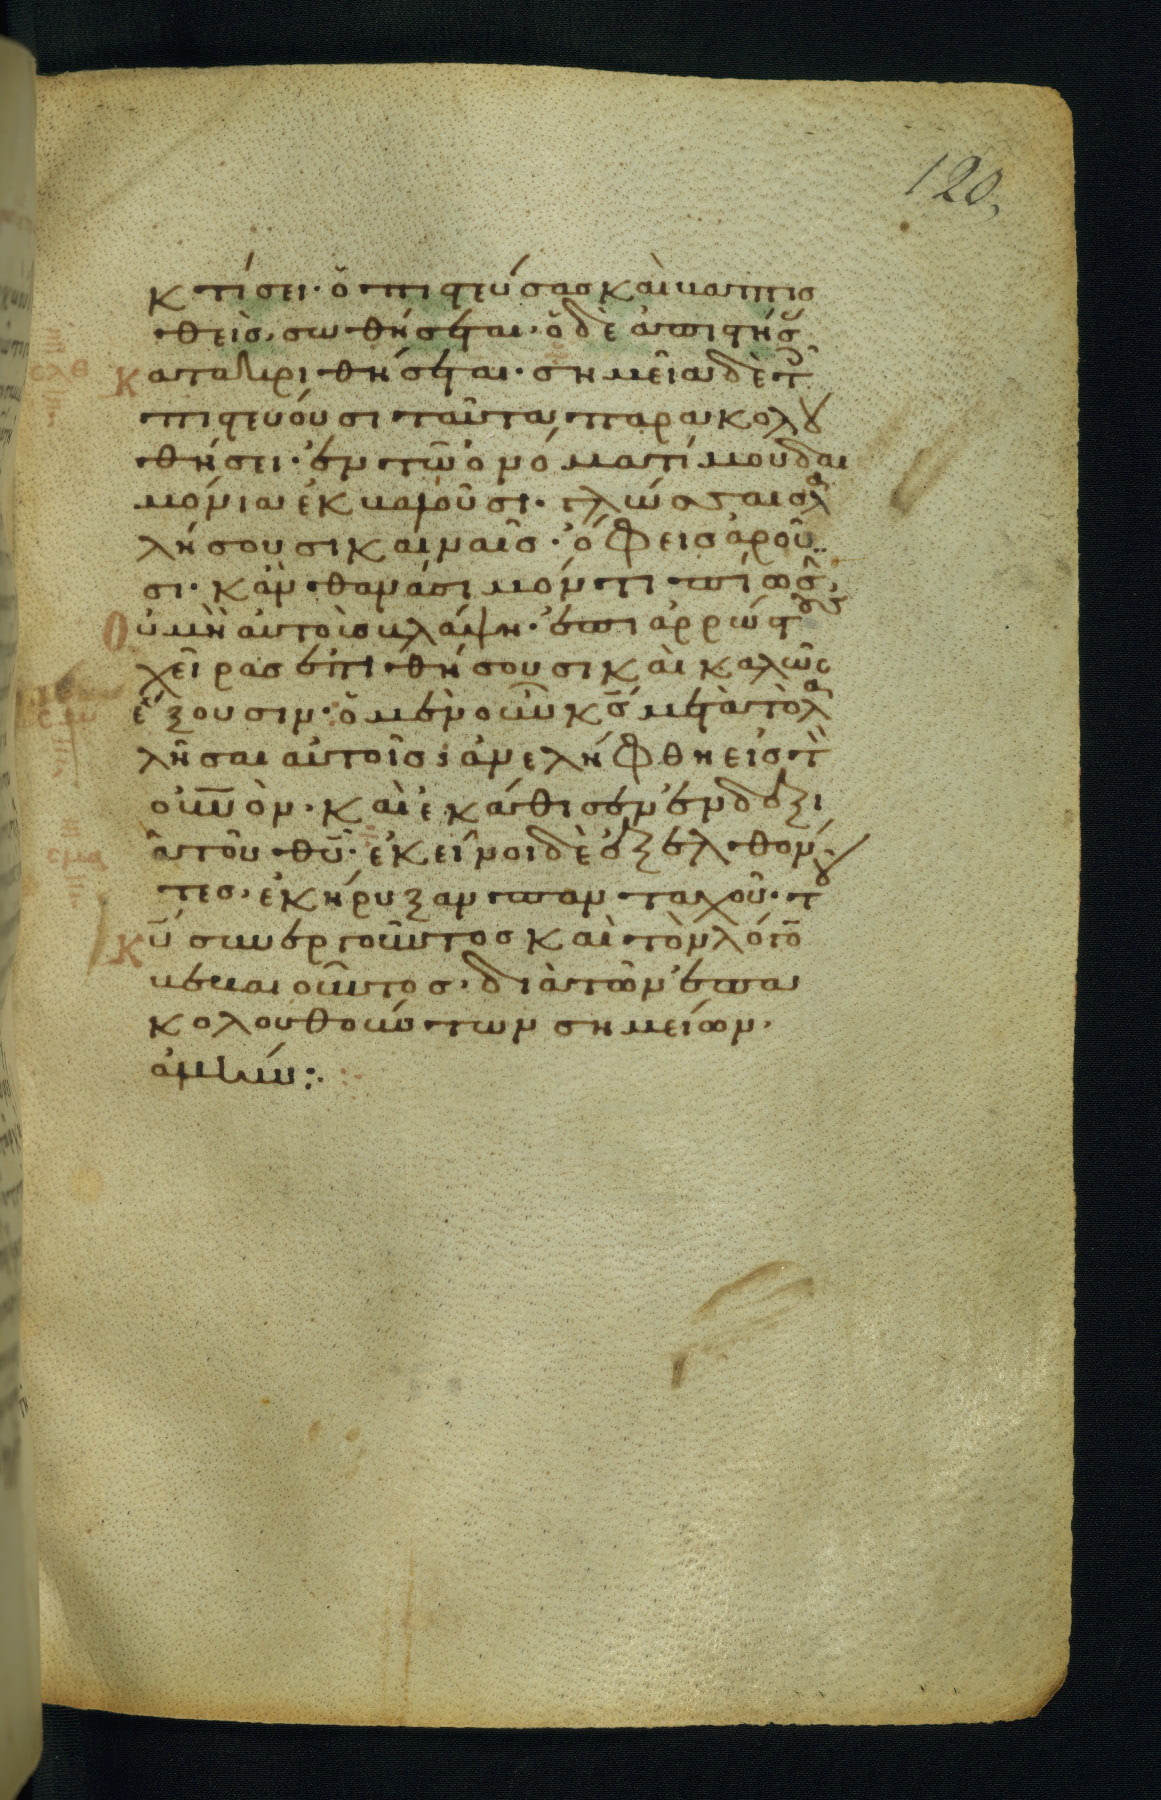 120
κτίσει· ὁ πιστεύσας καὶ βαπτισ
θεὶς, σωθήσεται· ὁ δὲ ἀπιστήσ
Κατακριθήσεται· σημεῖα δὲ τ
πιστεύουσι ταῦτα παρακολου
θήσει· ἐν τῶ ὀνόματί μου δαι
μόνια ἐκβαλοῦσι· γλώσσαις λα
λήσουσι καιναῖς· ὄφεις ἀροῦ
σι· κἂν θανάσιμόν τι πίωσι,
Οὐ μὴ αὐτοὺς βλάψη· ἐπὶ ἀρρώστους
χεῖρας ἐπιθήσουσι καὶ καλῶς
ἕξουσιν· ὁ μὲν οὖν κς μετὰ τὸ λα
λῆσαι αὐτοῖς· ἀνελήφθη εἰς τὸν
οὐνον· καὶ ἐκάθισεν ἐν δεξι
ᾶ τοῦ θυ· ἐκεῖνοι δὲ ἐξελθόν
τες· ἐκήρυξαν πανταχοῦ· τοῦ
Κυ συνεργοῦντος καὶ τὸν λόγον
βεβαιοῦντος· διὰ τῶν ἐπα
κολουθούντων σημείων·
ἀμήν:·